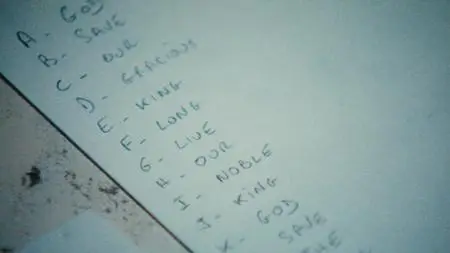 A - GOD
B - SAVE
C - OUR
D - GRACIOUS
E - KING
F - LONG
G - LIVE
H - OUR
I - NOBLE
J - KING
K - GOD
SAVE
THE